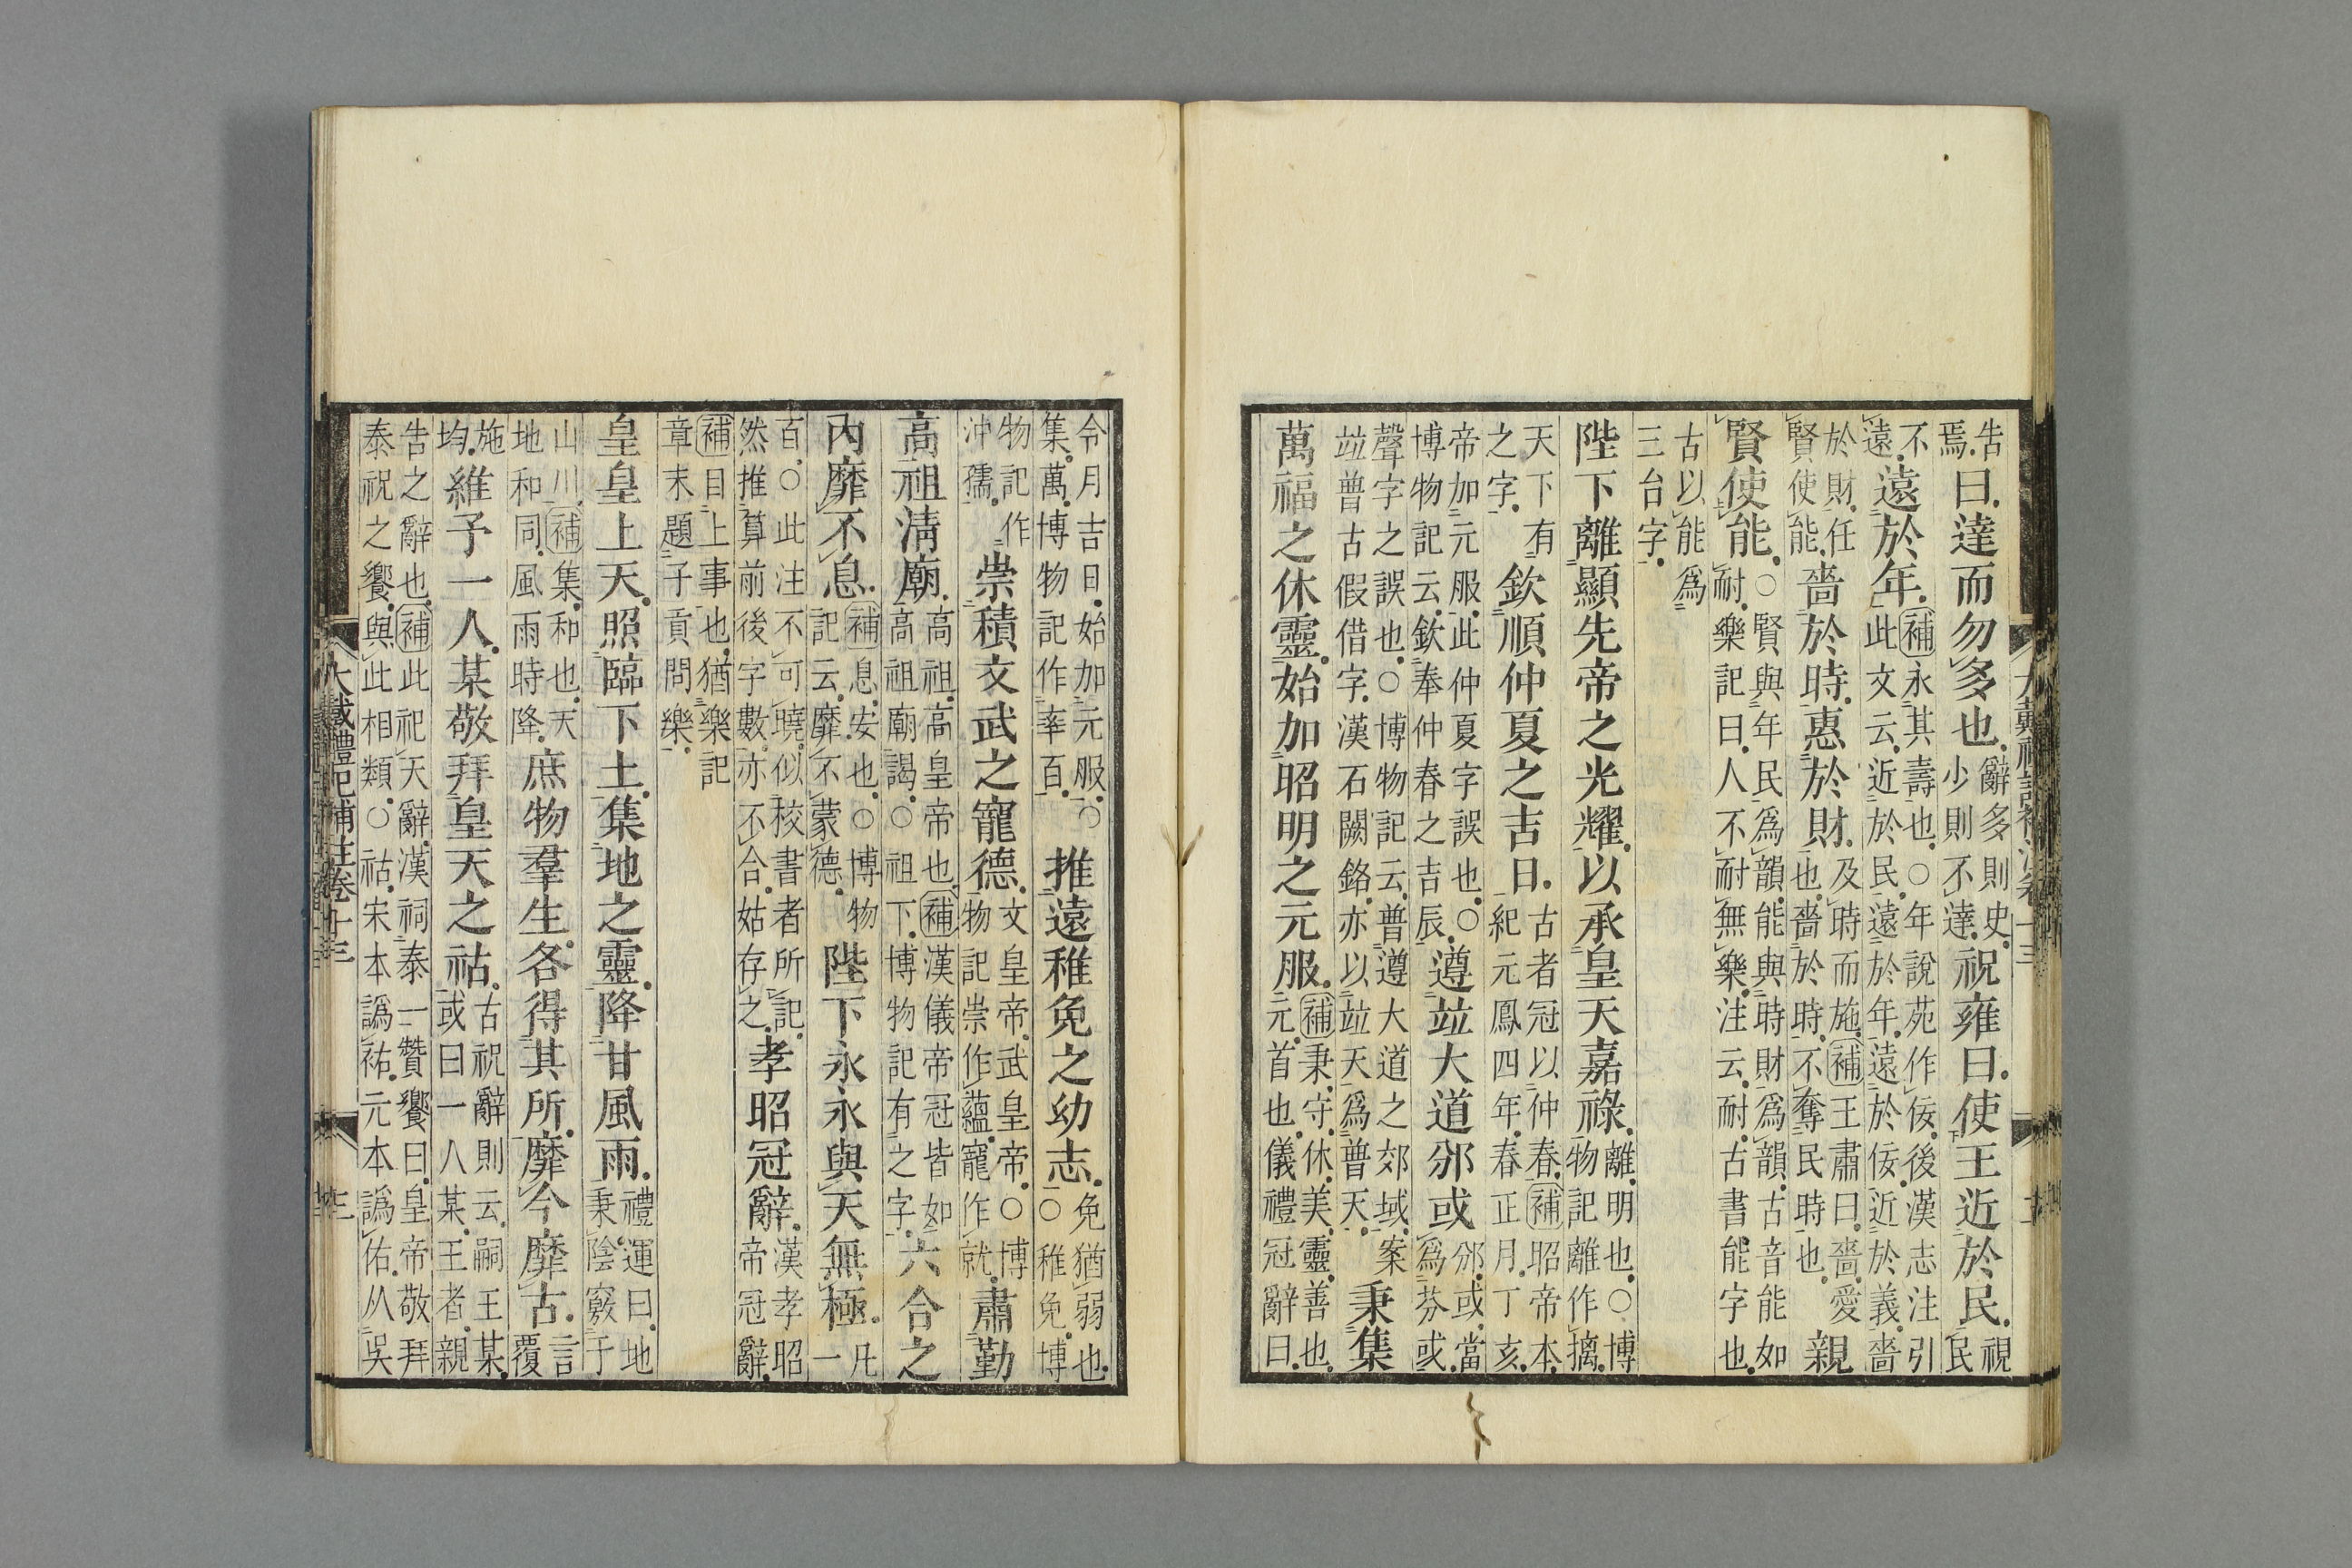 告焉曰達而勿多也辭多則史少則不達祝雍曰使王近於民視民
不遠遠於年補永其壽也○年說苑作佞後漢志注引此文云近於民遠於年遠於佞近於義嗇
於財任賢使能嗇於時惠於財及時而施補王肅曰嗇愛也嗇於時不奪民時也親
賢使能○賢與年民爲韻能與時財爲韻古音能如耐樂記曰人不耐無樂注云耐古書能字也
古以能爲三台字
陛下離顯先帝之光耀以承皇天嘉祿離明也○博物記離作摛
天下有之字欽順仲夏之吉日古者冠以仲春補昭帝本紀元鳳四年春正月丁亥
帝加元服此仲夏字誤也○博物記云欽奉仲春之吉辰遵竝大道邠或邠或當爲芬彧
聲字之誤也○博物記云普遵大道之郊域案竝普古假借字漢石闕銘亦以竝天爲普天秉集
萬福之休靈始加昭明之元服補秉守休美靈善也元首也儀禮冠辭曰
令月吉日始加元服○集萬博物記作率百推遠稚免之幼志免猶弱也○稚免博
物記作沖孺崇積文武之寵德文皇帝武皇帝○博物記崇作蘊寵作就肅勤
高祖淸廟高祖高皇帝也補漢儀帝冠皆如高祖廟謁○祖下博物記有之字六合之
內靡不息補息安也○博物記云靡不蒙德陛下永永與天無極凡一
百○此注不可曉似校書者所記然推算前後字數亦不合姑存之孝昭冠辭漢孝昭帝冠辭
補目上事也猶樂記章末題子貢問樂
皇皇上天照臨下土集地之靈降甘風雨禮運曰地秉陰竅于
山川補集和也天地和同風雨時降庶物羣生各得其所靡今靡古言覆
施均維予一人某敬拜皇天之祜古祝辭則云嗣王某或曰一人某王者親
告之辭也補此祀天辭漢祠泰一贊饗曰皇帝敬拜泰祝之饗與此相類○祜宋本譌祐元本譌佑从吳
大戴禮記補注卷十三